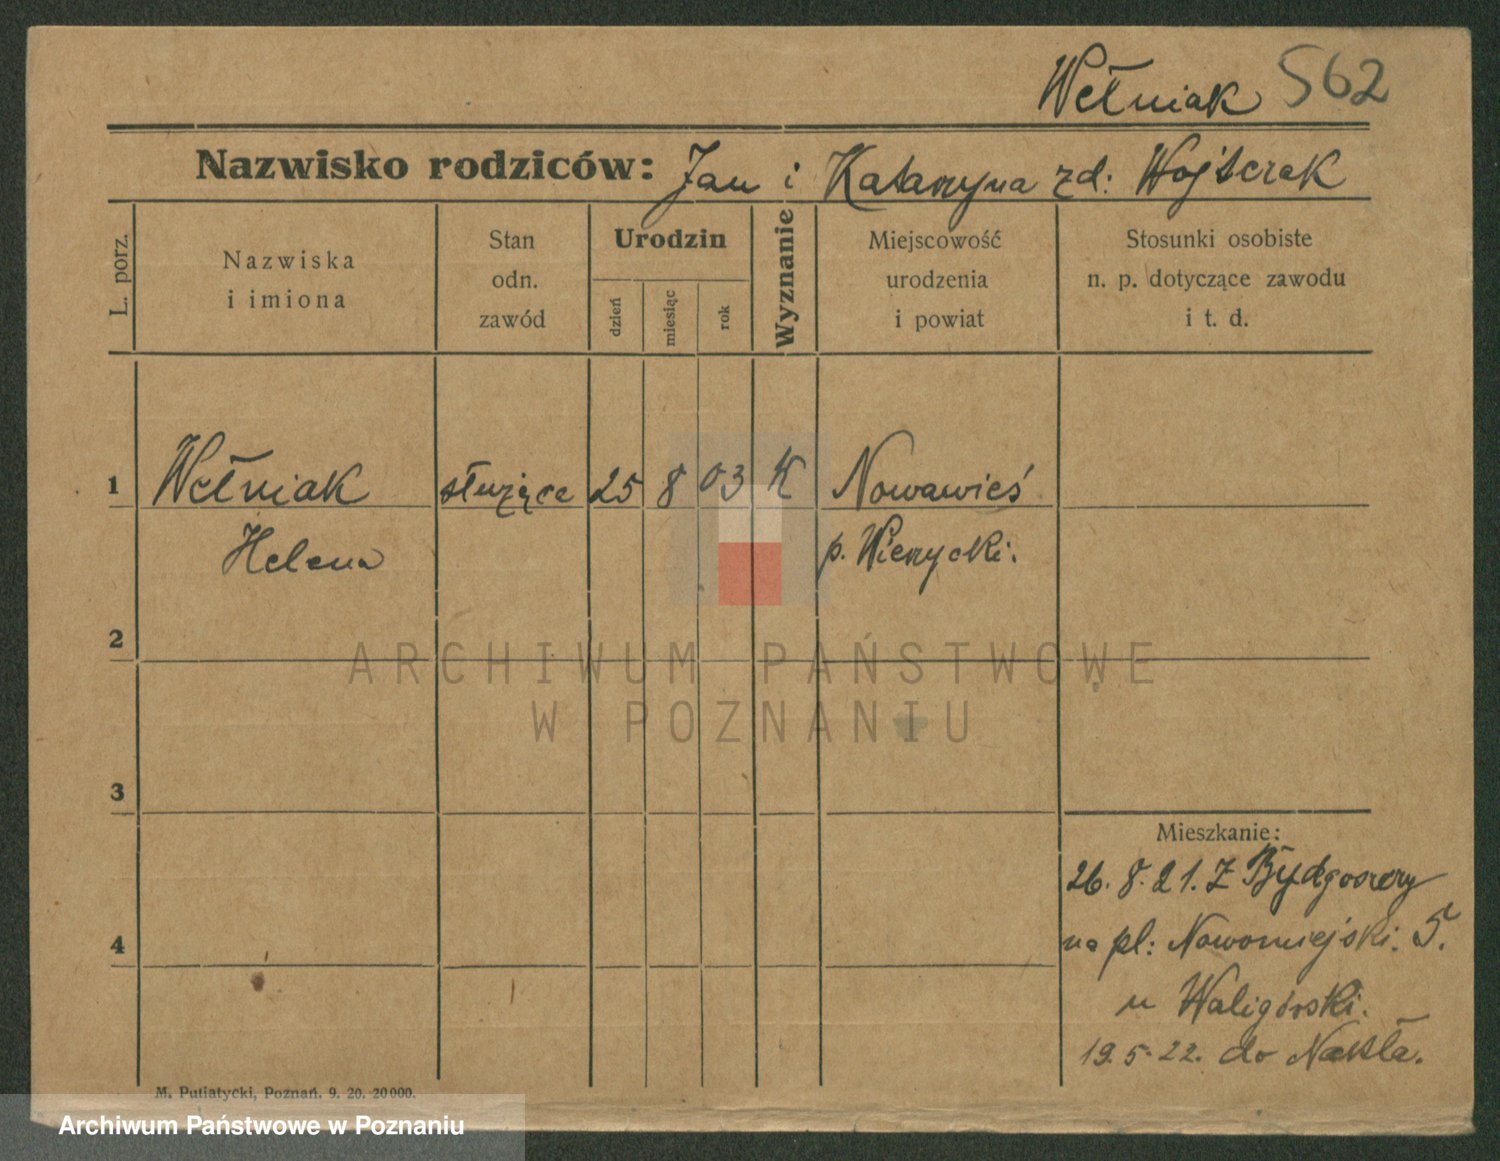 Wełniak 562
Nazwisko rodziców: Jan i Katarzyna zd: Wojtczak
L. porz.
Nazwiska
i imiona
Stan
odn.
zawód
Urodzin
dzień
miesiąc
rok
Wyznanie
Miejscowość
urodzenia
i powiat
Stosunki osobiste
n. p. dotyczące zawodu
i t. d.
1 Wełniak służąca 25 8 03 K Nowawieś
Helena p. Wierzycki.
2
ARCHIWUM PAŃSTWOWE
W POZNANIU
3
Mieszkanie:
26. 8. 21. Z Bydgoszczy
4 na pl: Nowomiejski. 5.
u Waligórski.
19. 5. 22. do Nakła.
M. Putiatycki, Poznań. 9. 20. 20000.
Archiwum Państwowe w Poznaniu